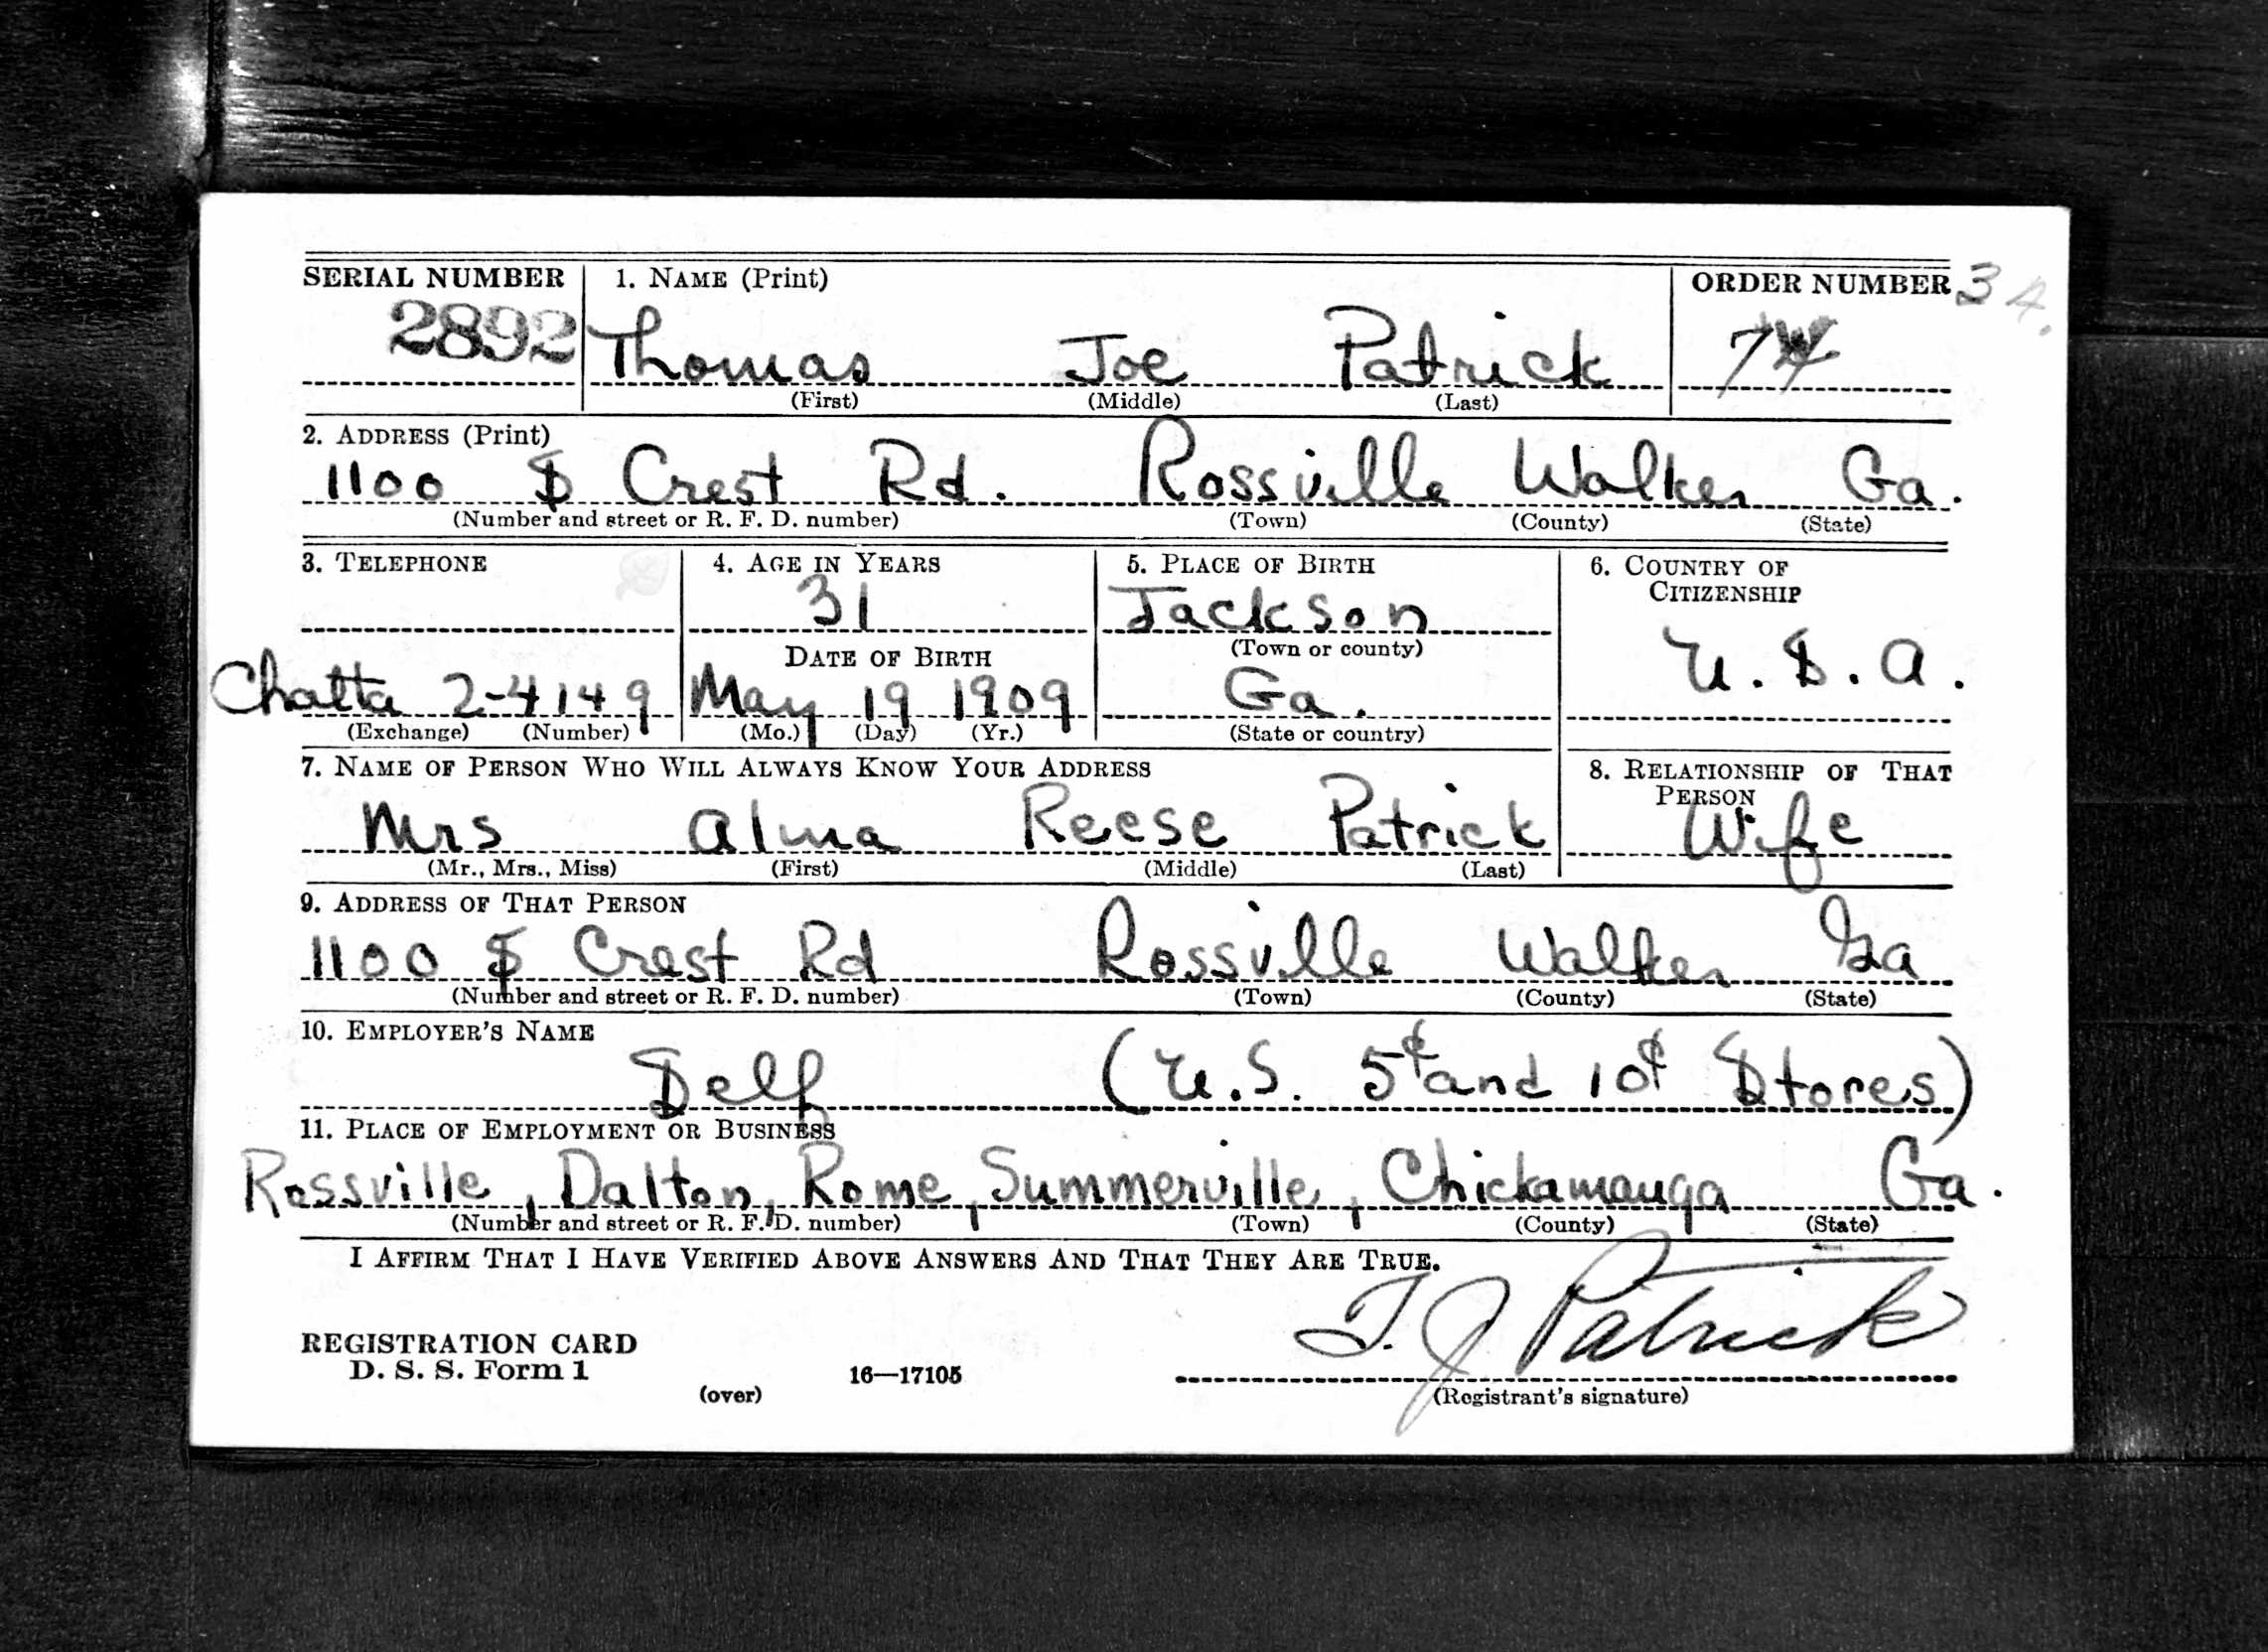 SERIAL NUMBER 1. NAME (Print) ORDER NUMBER 3 A.
2892 Thomas Joe Patrick
(First) (Middle) (Last)
2. ADDRESS (Print)
1100 S Crest Rd. Rossville Walker Ga.
(Number and street or R. F. D. number) (Town) (County) (State)
3. TELEPHONE 4. AGE IN YEARS 5. PLACE OF BIRTH 6. COUNTRY OF
CITIZENSHIP
31 Jackson
DATE OF BIRTH (Town or county) U. S. A.
Chatta 2-4149 May 19 1909 Ga.
(Exchange) (Number) (Mo.) (Day) (Yr.) (State or country)
7. NAME OF PERSON WHO WILL ALWAYS KNOW YOUR ADDRESS 8. RELATIONSHIP OF THAT
PERSON
Mrs Alma Reese Patrick Wife
(Mr., Mrs., Miss) (First) (Middle) (Last)
9. ADDRESS OF THAT PERSON
1100 S Crest Rd Rossville Walker Ga
(Number and street or R. F. D. number) (Town) (County) (State)
10. EMPLOYER'S NAME
Self (U.S. 5¢ and 10¢ Stores)
11. PLACE OF EMPLOYMENT OR BUSINESS
Rossville, Dalton, Rome, Summerville, Chickamauga Ga.
(Number and street or R. F. D. number) (Town) (County) (State)
I AFFIRM THAT I HAVE VERIFIED ABOVE ANSWERS AND THAT THEY ARE TRUE.
T. J Patrick
REGISTRATION CARD
D. S. S. Form 1 16—17105
(over) (Registrant's signature)